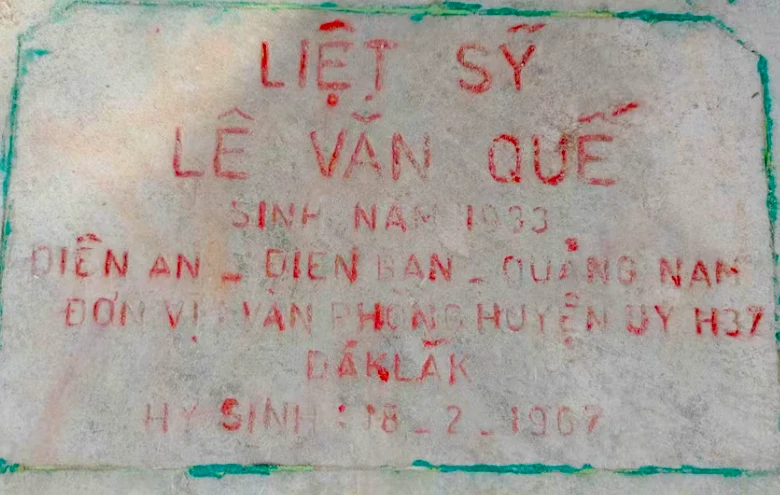 LIỆT SỸ
LÊ VĂN QUẾ
SINH NĂM 1933
ĐIỆN AN - ĐIỆN BÀN - QUẢNG NAM
ĐƠN VỊ: VĂN PHÒNG HUYỆN ỦY H37
ĐĂKLĂK
HY SINH: 18 - 2 - 1967